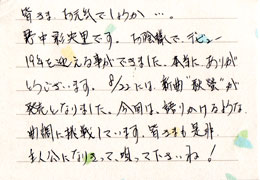 皆さま、お元気でしょうか…。
野中彩央里です。お陰様で、デビュー
19年を迎える事ができました。本当に、ありが
とうございます。8/22には、新曲"秋螢"が
発売となりました。今回は、語りかけるような
曲調に挑戦しています。皆さまも是非
主人公になりきって、唄って下さいね!